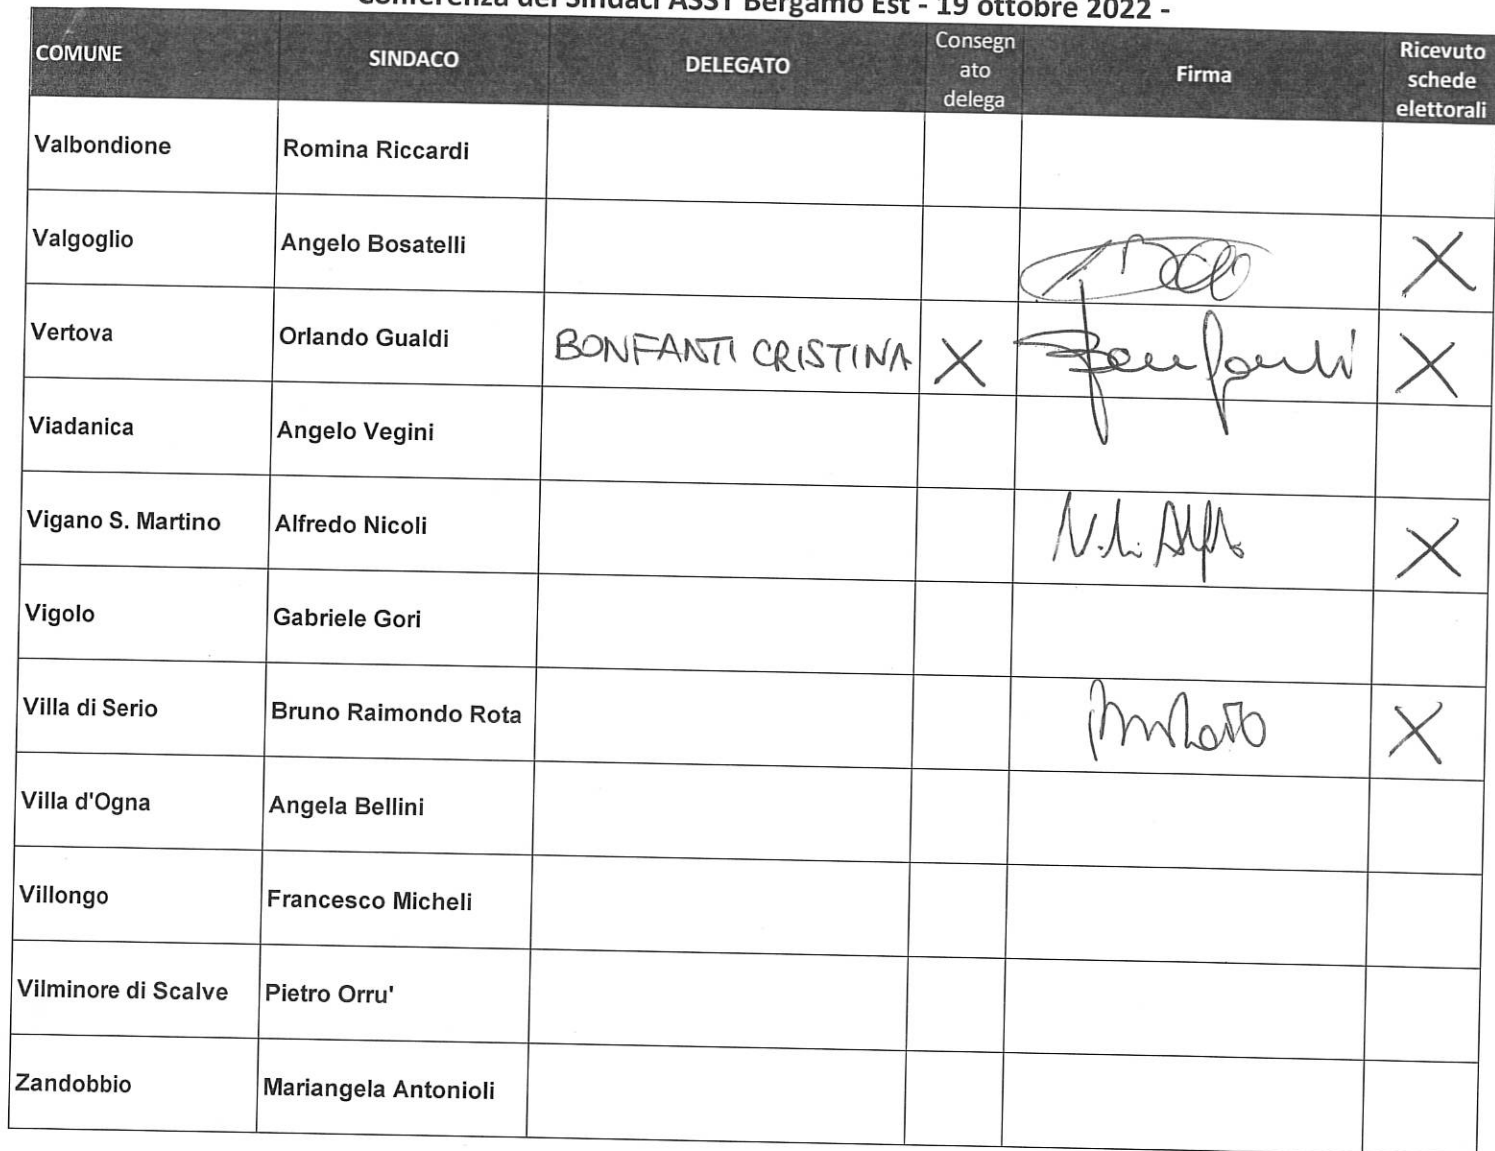 Conferenza dei Sindaci ASST Bergamo Est - 19 ottobre 2022 -
COMUNE SINDACO DELEGATO Consegn ato delega Firma Ricevuto schede elettorali
Valbondione Romina Riccardi
Valgoglio Angelo Bosatelli X
Vertova Orlando Gualdi BONFANTI CRISTINA X Bonfanti X
Viadanica Angelo Vegini
Vigano S. Martino Alfredo Nicoli X
Vigolo Gabriele Gori
Villa di Serio Bruno Raimondo Rota X
Villa d'Ogna Angela Bellini
Villongo Francesco Micheli
Vilminore di Scalve Pietro Orru'
Zandobbio Mariangela Antonioli